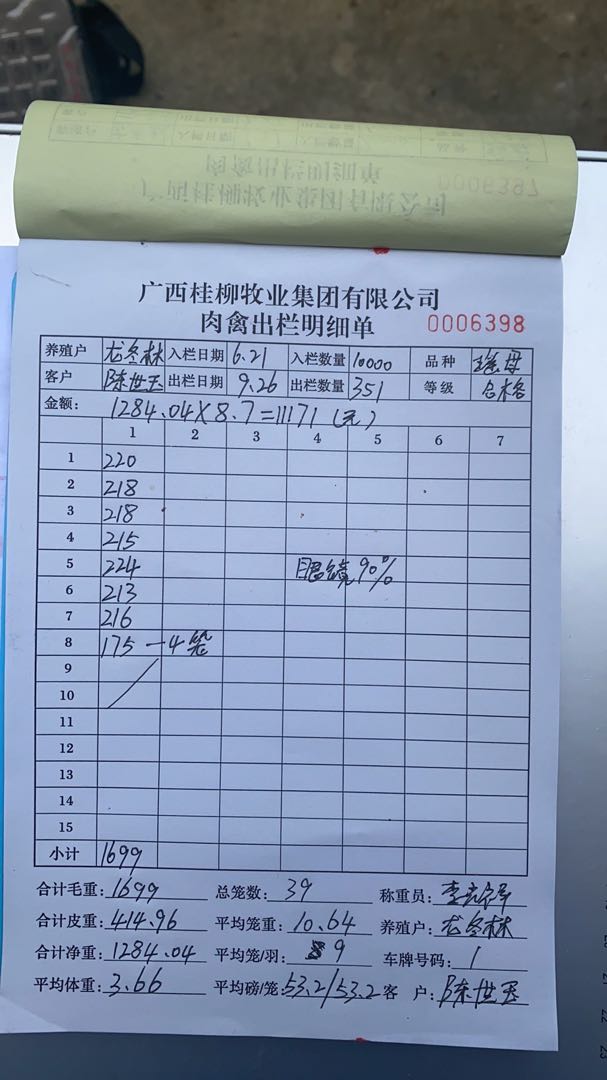 0006397
广西桂柳牧业集团有限公司
肉禽出栏明细单
广西桂柳牧业集团有限公司
肉禽出栏明细单 0006398
养殖户 龙冬林 入栏日期 6.21 入栏数量 10000 品种 瑤母
客户 陈世玉 出栏日期 9.26 出栏数量 351 等级 合格
金额: 1284.04×8.7=11171 (元)
1 2 3 4 5 6 7
1 220
2 218
3 218
4 215
5 224 眼镜90%
6 213
7 216
8 175 —4笼
9
10
11
12
13
14
15
小计 1699
合计毛重: 1699 总笼数: 39 称重员:
合计皮重: 414.96 平均笼重: 10.64 养殖户: 龙冬林
合计净重: 1284.04 平均笼/羽: 9 车牌号码: 1
平均体重: 3.66 平均磅/笼: 53.2/53.2 客 户: 陈世玉